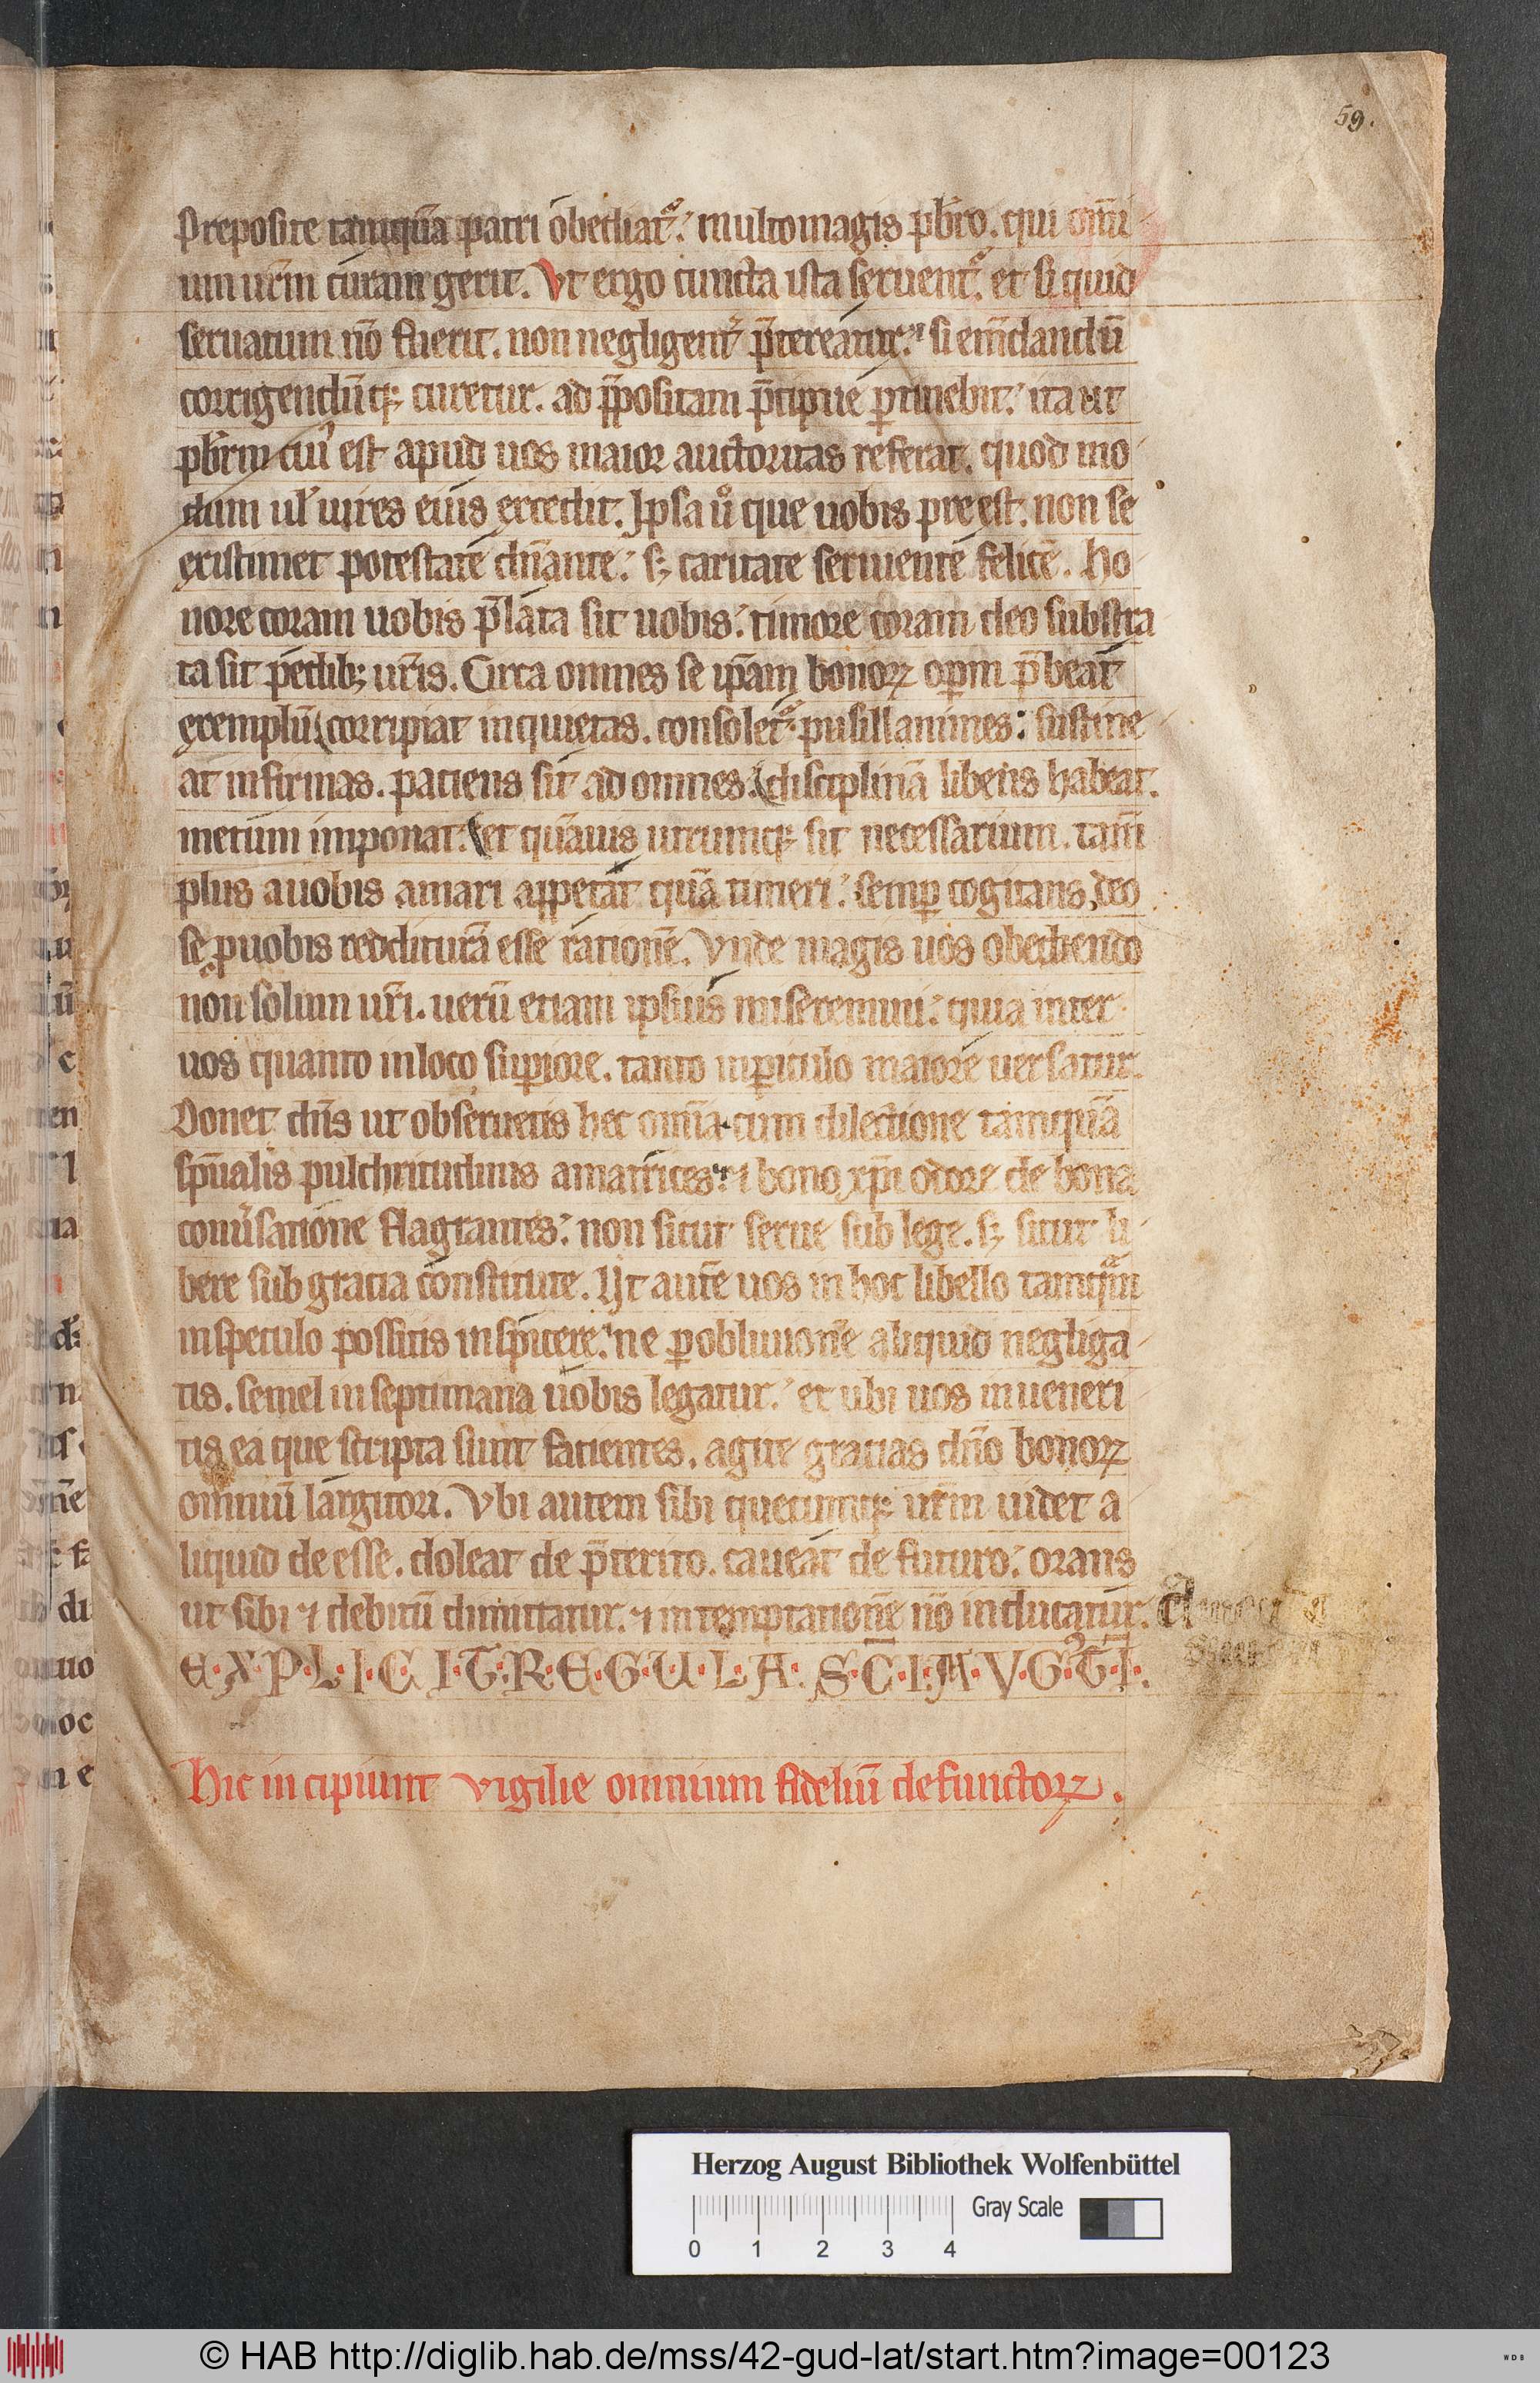 59.
Preposite tamquā patri obediat᷑. multo magis pb̄ro. qui om̄i
um ur̄m curam gerit. Vt ergo cuncta ista seruent᷑. et si quid
seruatum nō fuerit. non negligent᷑ p̄tereatur. si em̄dandū
corrigendūq; curetur. ad p̄positam p̄cipue ꝑtinebit. ita ut
pb̄rm cui᷒ est apud uos maior auctoritas referat. quod mo
dum ul̄ uires eius excedit. Ipsa ů que uobis preest. non se
existimet potestate dn̄ante. s; caritate seruiente felicē. Ho
nore coram uobis p̄lata sit uobis. timore coram deo substra
ta sit pedib; ur̄is. Circa omnes se ip̄am bonoꝝ oꝑm p̄beat
exemplū corripiat inquietas. consolet᷑ pusillanimes. sustine
at infirmas. patiens sit ad omnes. disciplinā libens habeat.
metum imponat. et quāuis utrumq; sit necessarium. tam̄
plus a uobis amari appetat quā timeri. semꝑ cogitans deo
se ꝓ uobis redditurā esse rationē. Vnde magis uos obediendo
non solum ur̄i. uerū etiam ipsius miseremini. quia inter
uos quanto in loco suꝑiore. tanto in ꝑiculo maiore uersatur.
Donet dn̄s ut obseruetis hec om̄ia cum dilectione tamquā
sp̄ualis pulchritudinis amatrices. ⁊ bono xp̄i odore de bona
conuersatione flagrantes. non sicut serue sub lege. s; sicut li
bere sub gratia constitute. Vt autē uos in hoc libello tamqᷓm
in speculo possitis inspicere. ne ꝑ obliuionē aliquid negliga
tis. semel in septimana uobis legatur. et ubi uos inueneri
tis ea que scripta sunt facientes. agite gratias dn̄o bonoꝝ
omniū largitori. Vbi autem sibi quecumq; ur̄m uidet a
liquid deesse. doleat de p̄terito. caueat de futuro. orans
ut sibi ⁊ debitū dimittatur. ⁊ in temptationē nō inducatur.
E·X·P·L·I·C·I·T·R·E·G·U·L·A· S·C̄·I·A·V·G᷒·T·Ī·
Hic incipiunt vigilie omnium fideliū defunctoꝝ.
Herzog August Bibliothek Wolfenbüttel
Gray Scale
0 1 2 3 4
© HAB http://diglib.hab.de/mss/42-gud-lat/start.htm?image=00123
WDB